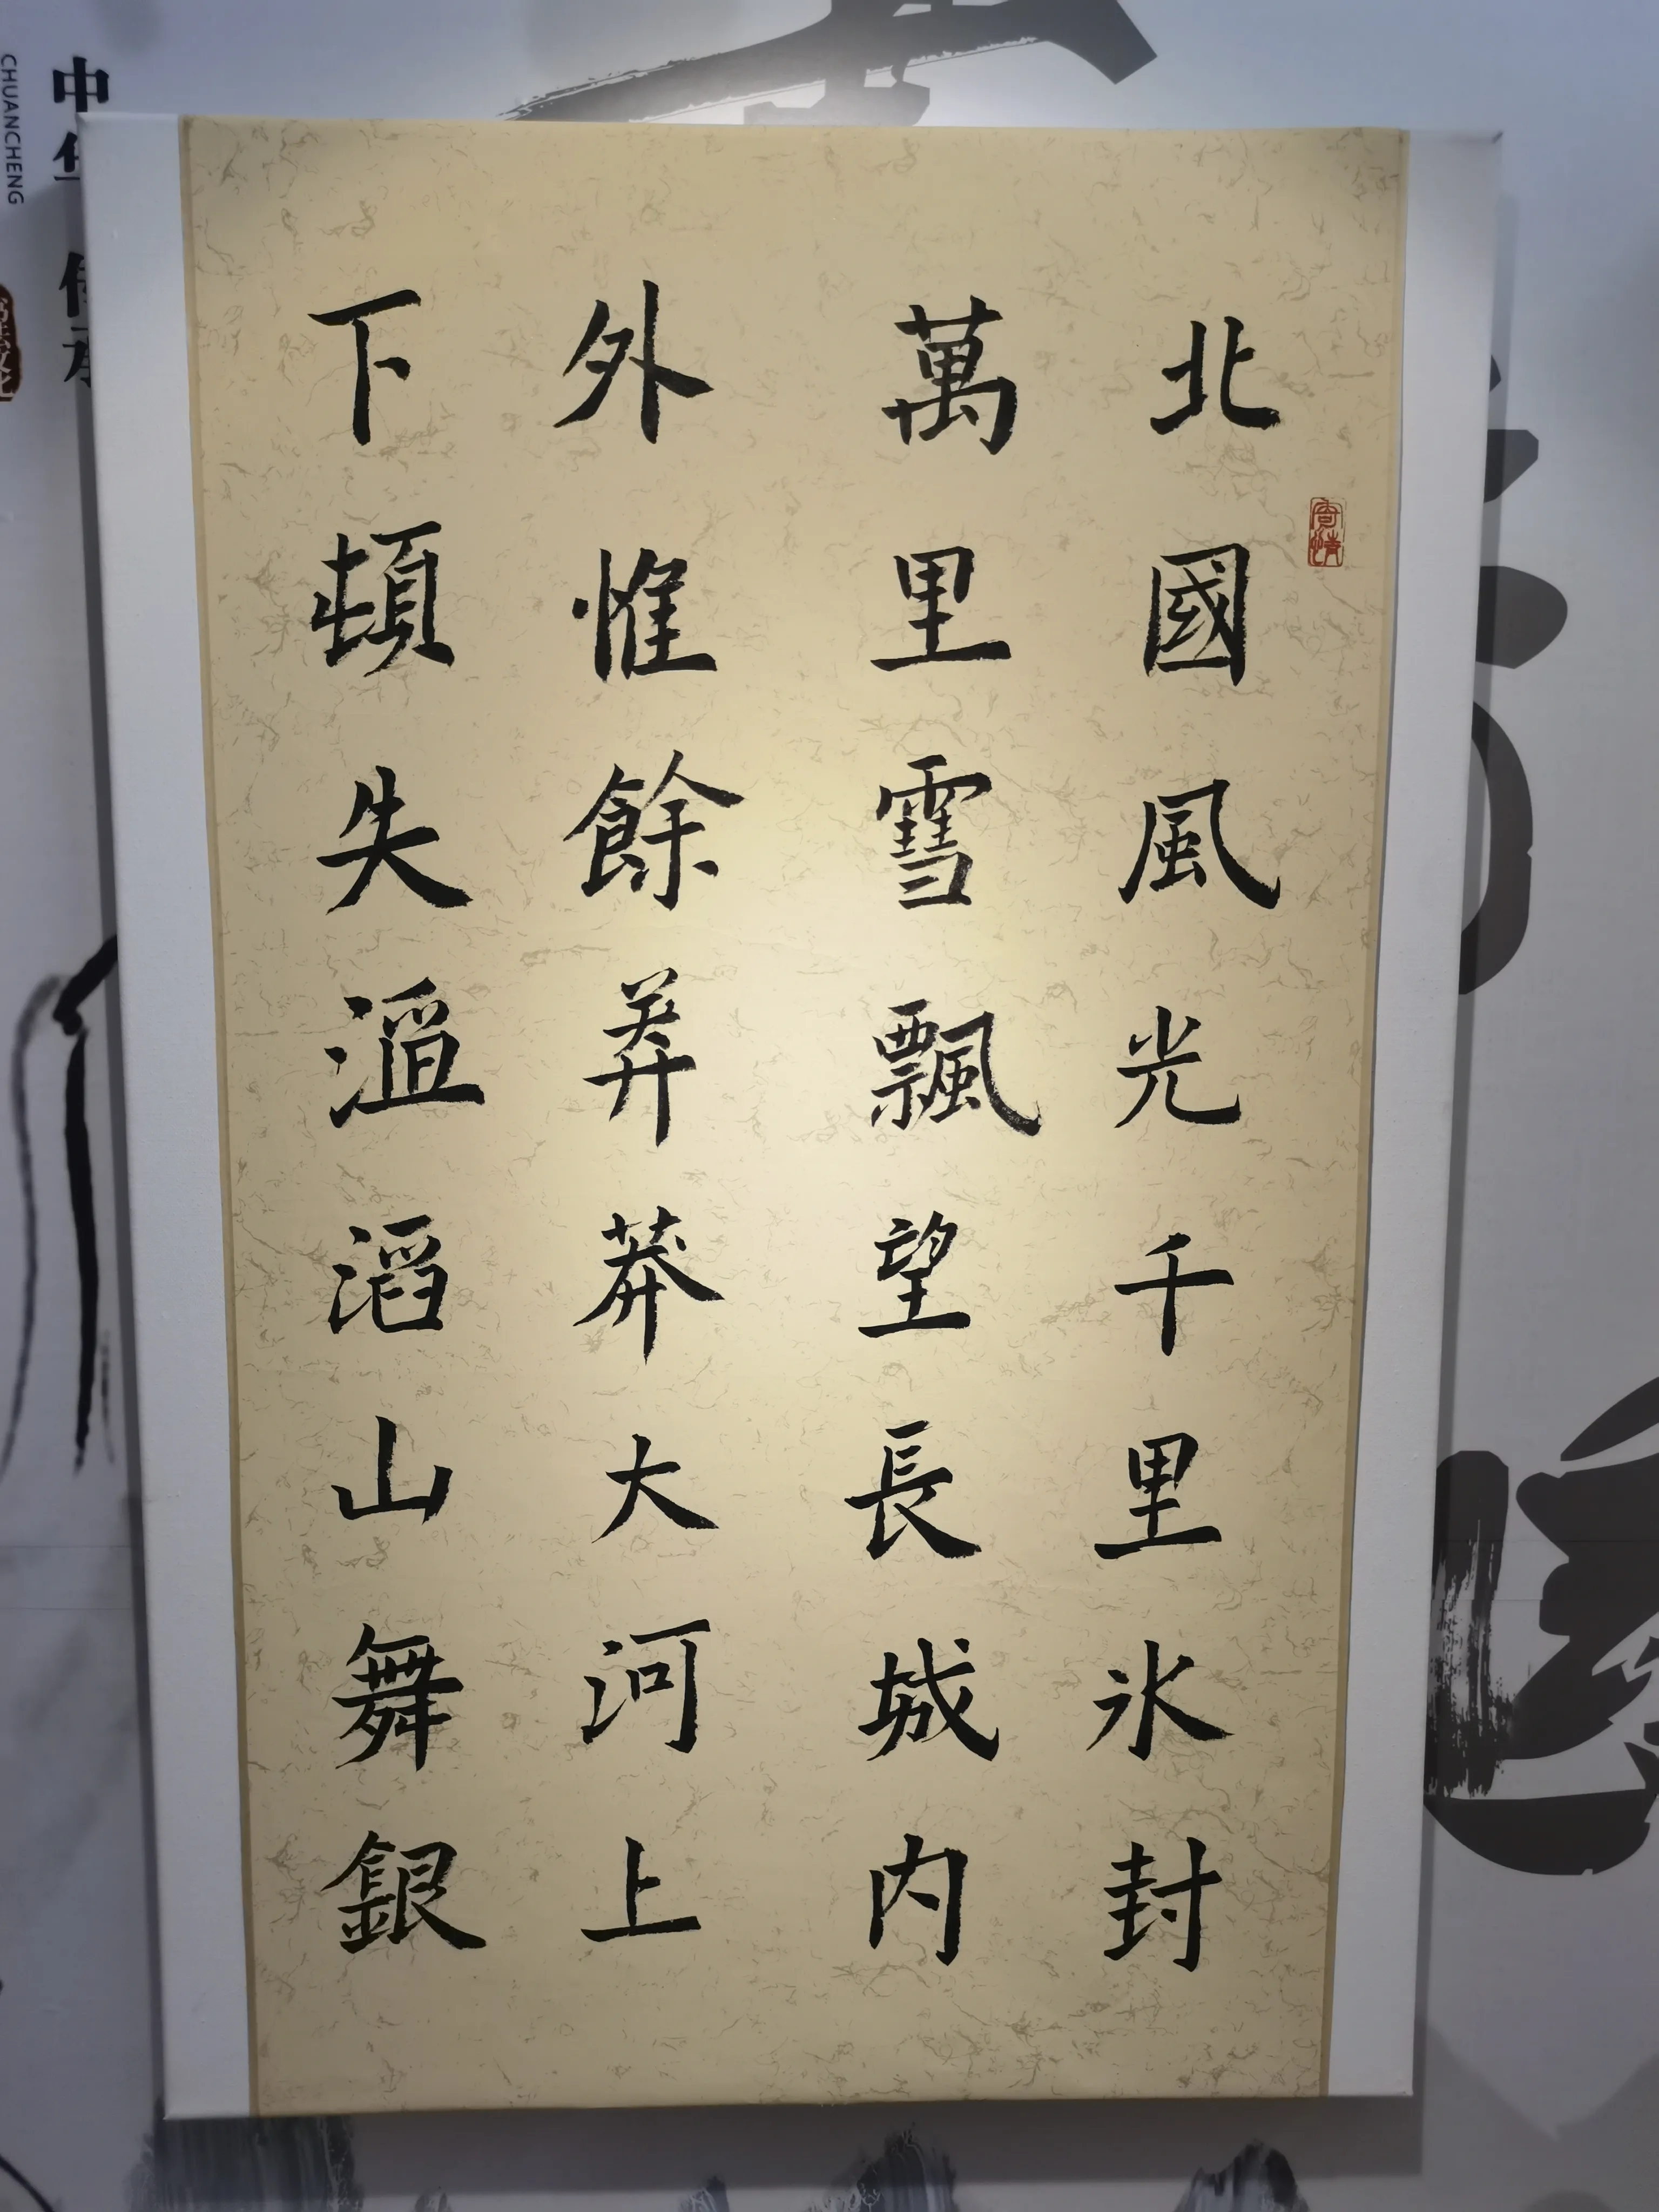 北國風光千里氷封
萬里雪飄望長城内
外惟餘莽莽大河上
下頓失滔滔山舞銀
寄情
中
CHUANCHENG